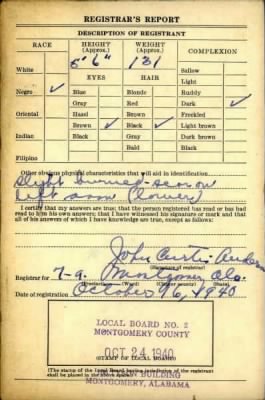 REGISTRAR'S REPORT
DESCRIPTION OF REGISTRANT
RACE HEIGHT (Approx.) WEIGHT (Approx.) COMPLEXION
White 5' 6" 131 Sallow
EYES HAIR Light
Negro ✓ Blue Blonde Ruddy
Gray Red Dark ✓
Oriental Hazel Brown Freckled
Brown ✓ Black ✓ Light brown
Indian Black Gray Dark brown
Bald Black
Filipino
Other obvious physical characteristics that will aid in identification
Slight burned scar on
left arm (lower)
I certify that my answers are true; that the person registered has read or has had
read to him his own answers; that I have witnessed his signature or mark and that
all of his answers of which I have knowledge are true, except as follows:
John Curtis
(Signature of registrar)
Registrar for 7-9. Montgomery Ala.
(Precinct) (Ward) (City or county) (State)
Date of registration October 16, 1940
LOCAL BOARD NO. 2
MONTGOMERY COUNTY
OCT 24 1940
(STAMP OF LOCAL BOARD)
(The stamp of the Local Board having jurisdiction of the registrant
shall be placed in the above space.)
BUILDING
MONTGOMERY, ALABAMA